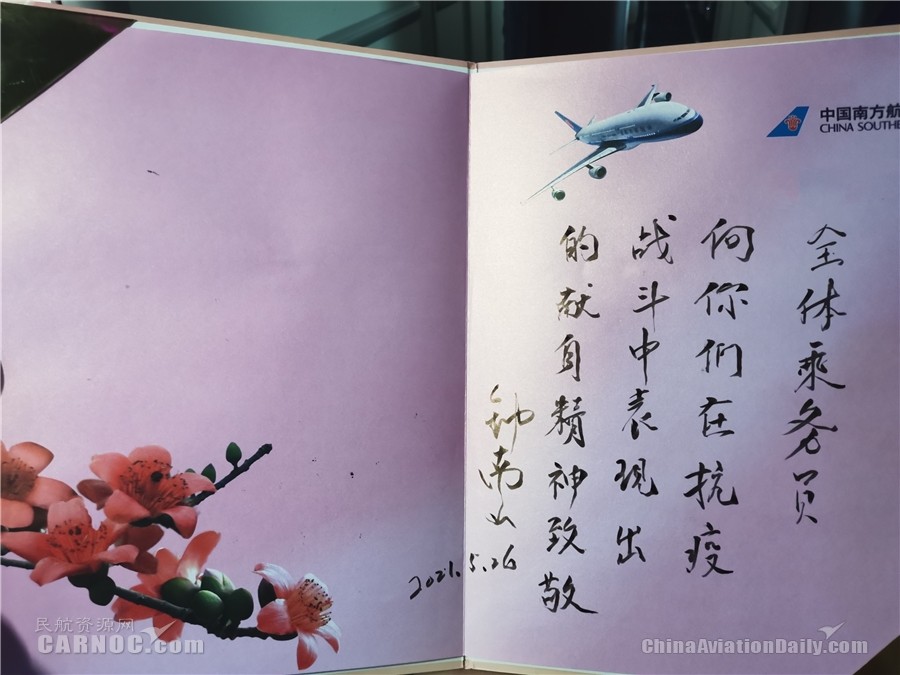 中国南方航
CHINA SOUTHE
全体乘务员
向你们在抗疫
战斗中表现出
的献身精神致敬
钟南山
2021.5.26
民航资源网
CARNOC.com
ChinaAviationDaily.com